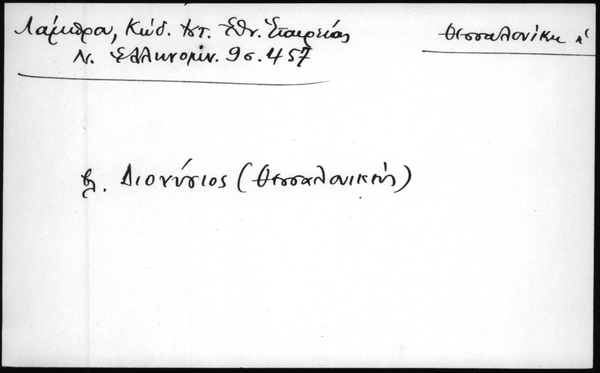 Λάμπρου, Κώδ. Ἱστ. Ἐθν. Ἑταιρείας
Ν. Ἑλληνομν. 9 σ. 457
Θεσσαλονίκη
βλ. Διονύσιος (Θεσσαλονικεύς)